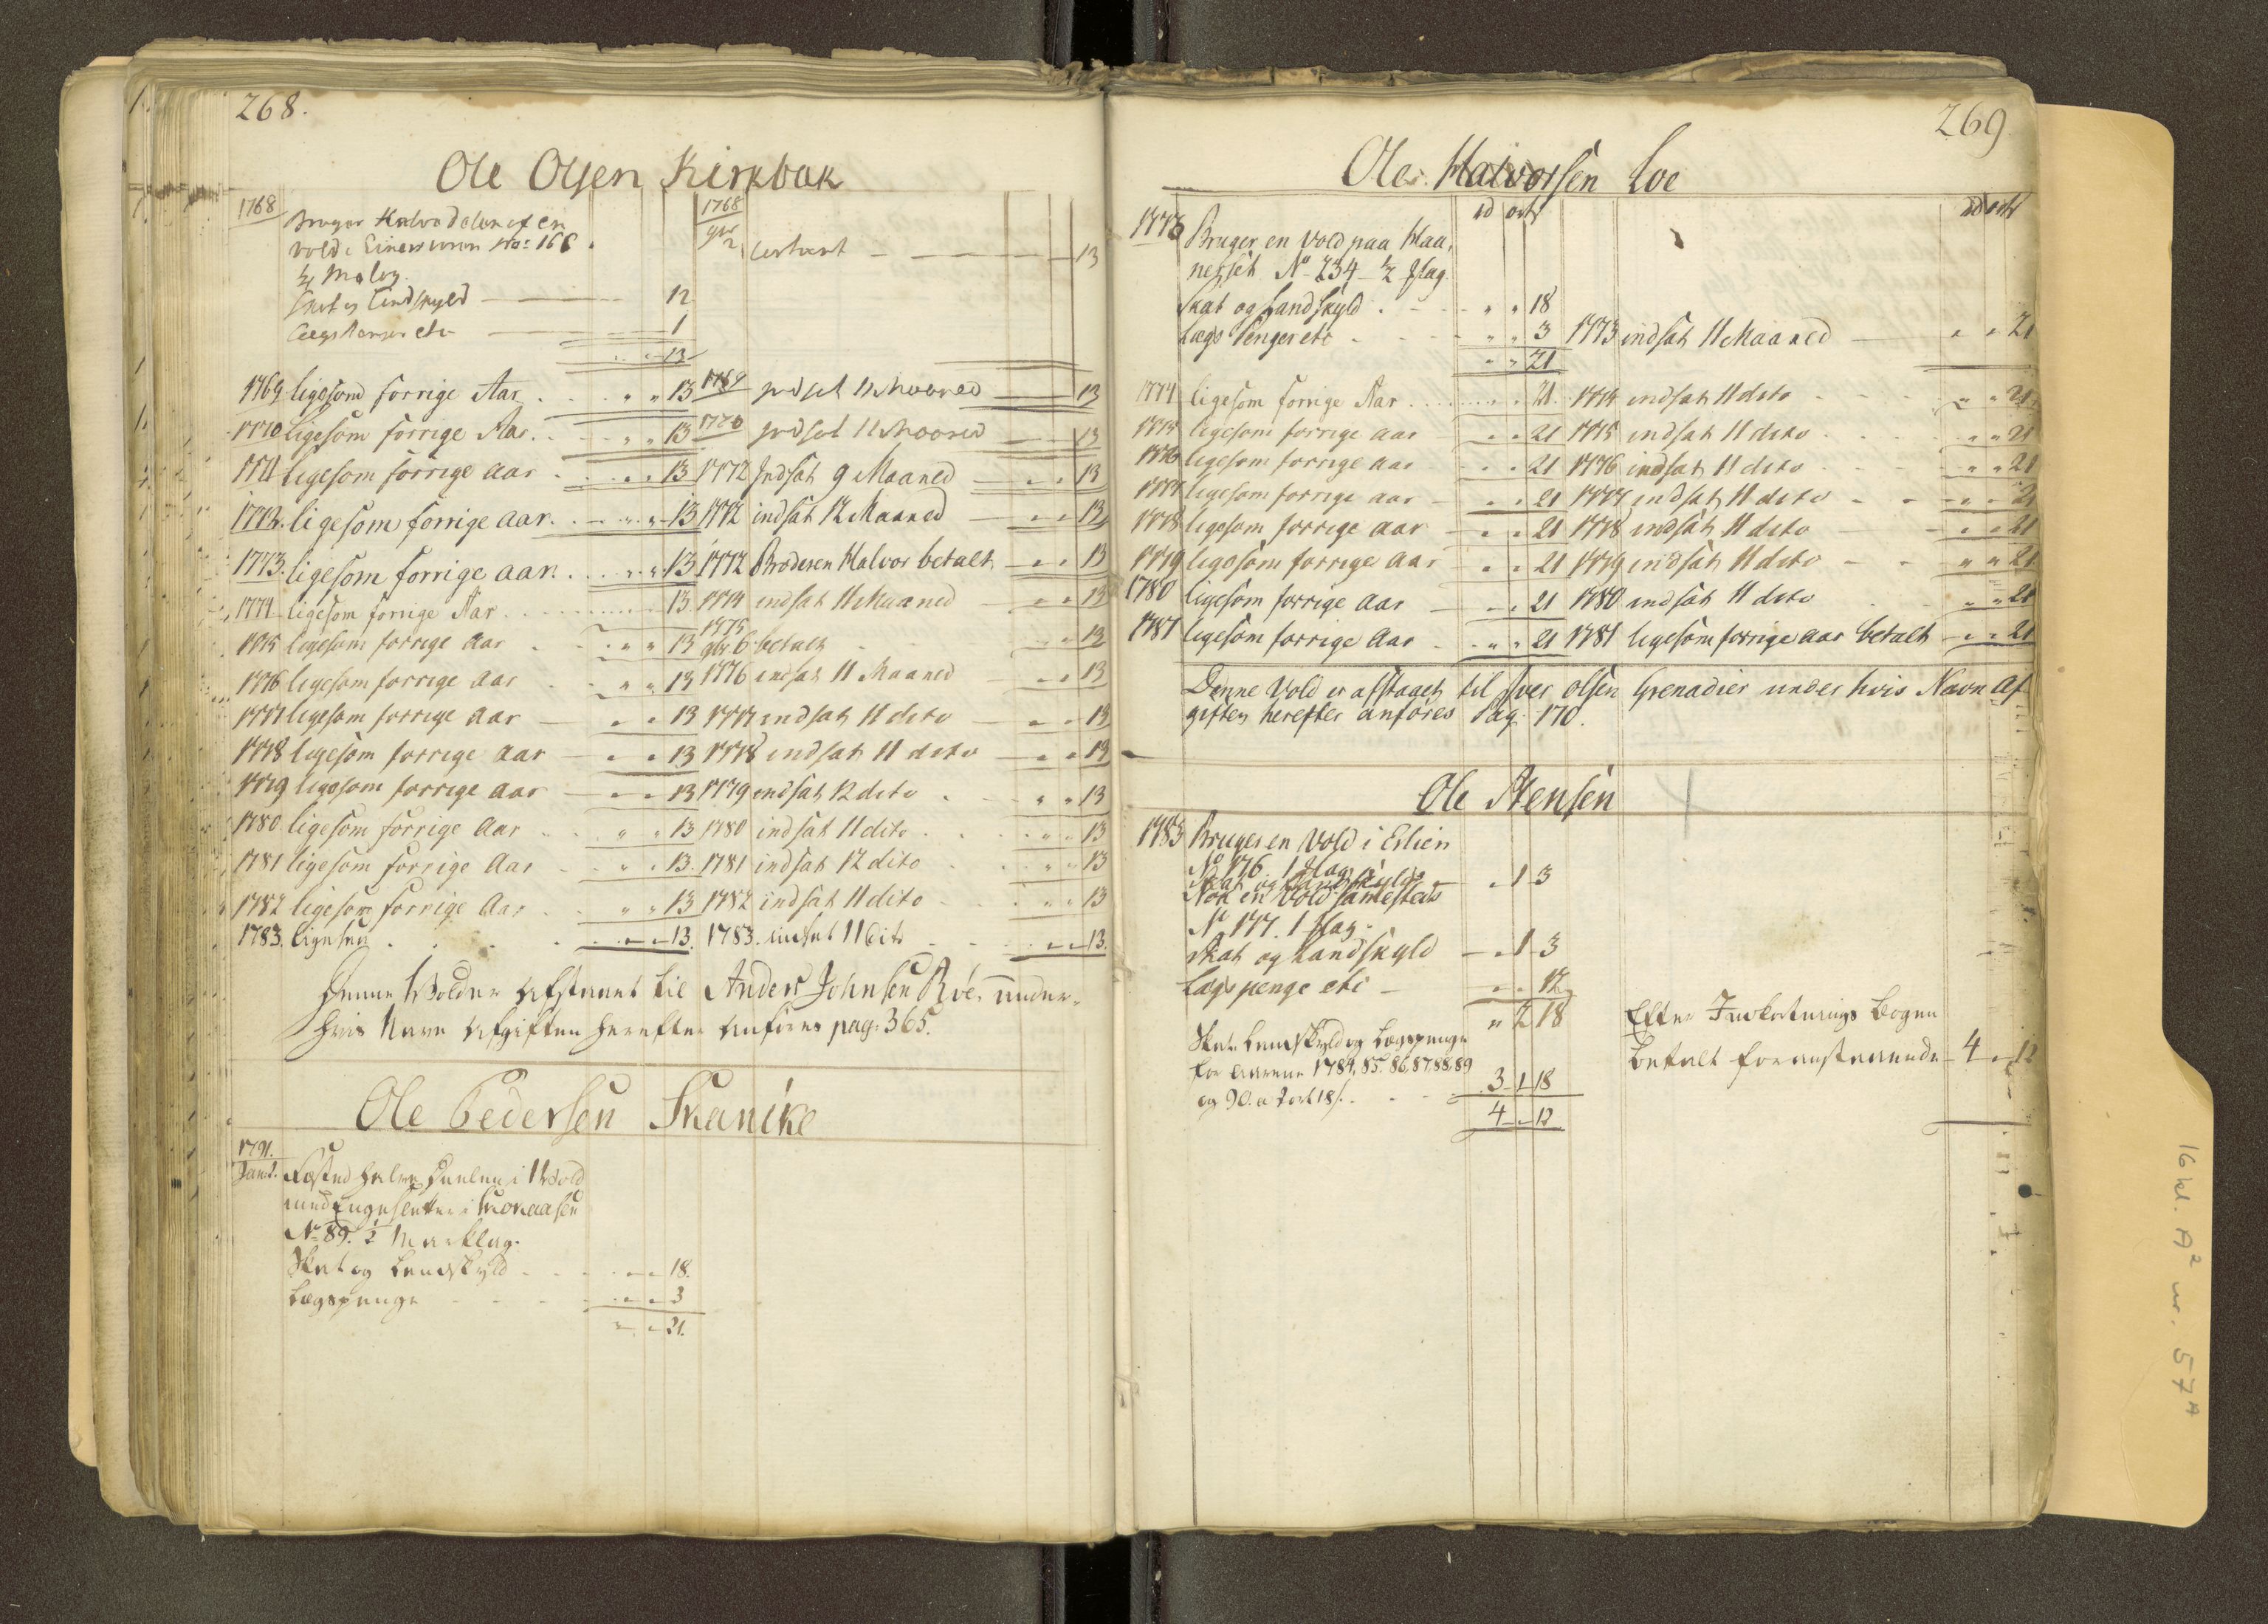 268.
Ole Olsen Kirkbak
1768 Bruger Halve delen af en
vold i No: 166
1/4 Mælag
Skat og Landskyld 12
Lægspenger etc 1
13
1768
9br 2 13
1769 ligesom forrige Aar 13 1769 Indsat 11 Maaned 13
1770 ligesom forrige Aar 13 1770 Indsat 11 Maaned 13
1771 ligesom forrige aar 13 1772 Indsat 9 Maaned 13
1772 ligesom forrige aar 13 1772 indsat 12 Maaned 13
1773 ligesom forrige aar 13 1772 Broderen Halvor betalt 13
1774 ligesom forrige Aar 13 1774 indsat 11 Maaned 13
1775 ligesom forrige aar 13 1775 9br 6 betalt 13
1776 ligesom forrige aar 13 1776 indsat 11 Maaned 13
1777 ligesom forrige aar 13 1777 indsat 11 dito 13
1778 ligesom forrige aar 13 1778 indsat 11 dito 13
1779 ligesom forrige aar 13 1779 indsat 12 dito 13
1780 ligesom forrige Aar 13 1780 indsat 11 dito 13
1781 ligesom forrige Aar 13 1781 indsat 12 dito 13
1782 ligesom forrige Aar 13 1782 indsat 11 dito 13
1783. ligesen 13. 1783. indsat 11 dito 13.
Denne Volder afstaaet til Anders Johnsen Röe, under
hvis Navn Afgiften herefter anføres pag: 365.
Ole Pedersen Skanike
1791.
Janr. Fæsted halve Deelen i 1 Vold
med Engesletter i
No 89. 1/2 Marklag.
Skat og Landskyld 18.
Lægspenge 3
21.
269
Ole Halvorsen Loe
rd ort
rd ort
1773 Bruger en Vold paa Haa,
nesset No 234 1/2 Mlag
Skat og Landskyld 18
Lægs Penger etc 3 1773 indsat 11 Maaned 21
21
1774 ligesom forrige Aar 21. 1774 indsat 11 dito 21
1775 ligesom forrige aar 21 1775 indsat 11 dito 21
1776 ligesom forrige aar 21 1776 indsat 11 dito 21
1777 ligesom forrige aar 21 1777 indsat 11 dito 21
1778 ligesom forrige aar 21 1778 indsat 11 dito 21
1779 ligesom forrige aar 21 1779 indsat 11 dito 21
1780 ligesom forrige aar 21 1780 indsat 11 dito 21
1781 ligesom forrige Aar 21 1781 ligesom forrige aar betalt 21
Denne Vold er afstaaet til Iver Olsen Grenadier under hvis Navn Af
giften herefter anføres Pag. 170.
Ole Stensen
1783 Bruger en Vold i Eslien
No 176 1 Mlag
Skat og Landskyld 1 3
Nok en Vold samesteds
No 177. 1 Mlag.
Skat og Landskyld 1 3
Lægspenge etc 12
2 18
Skat Landskyld og Lægspenge
for Aarene 1784, 85. 86, 87, 88, 89
og 90. 3 1 18
4 12
Efter Indkorterings Bogen
betalt foranstaaende 4 12
16 kl. A² nr. 57ᴬ